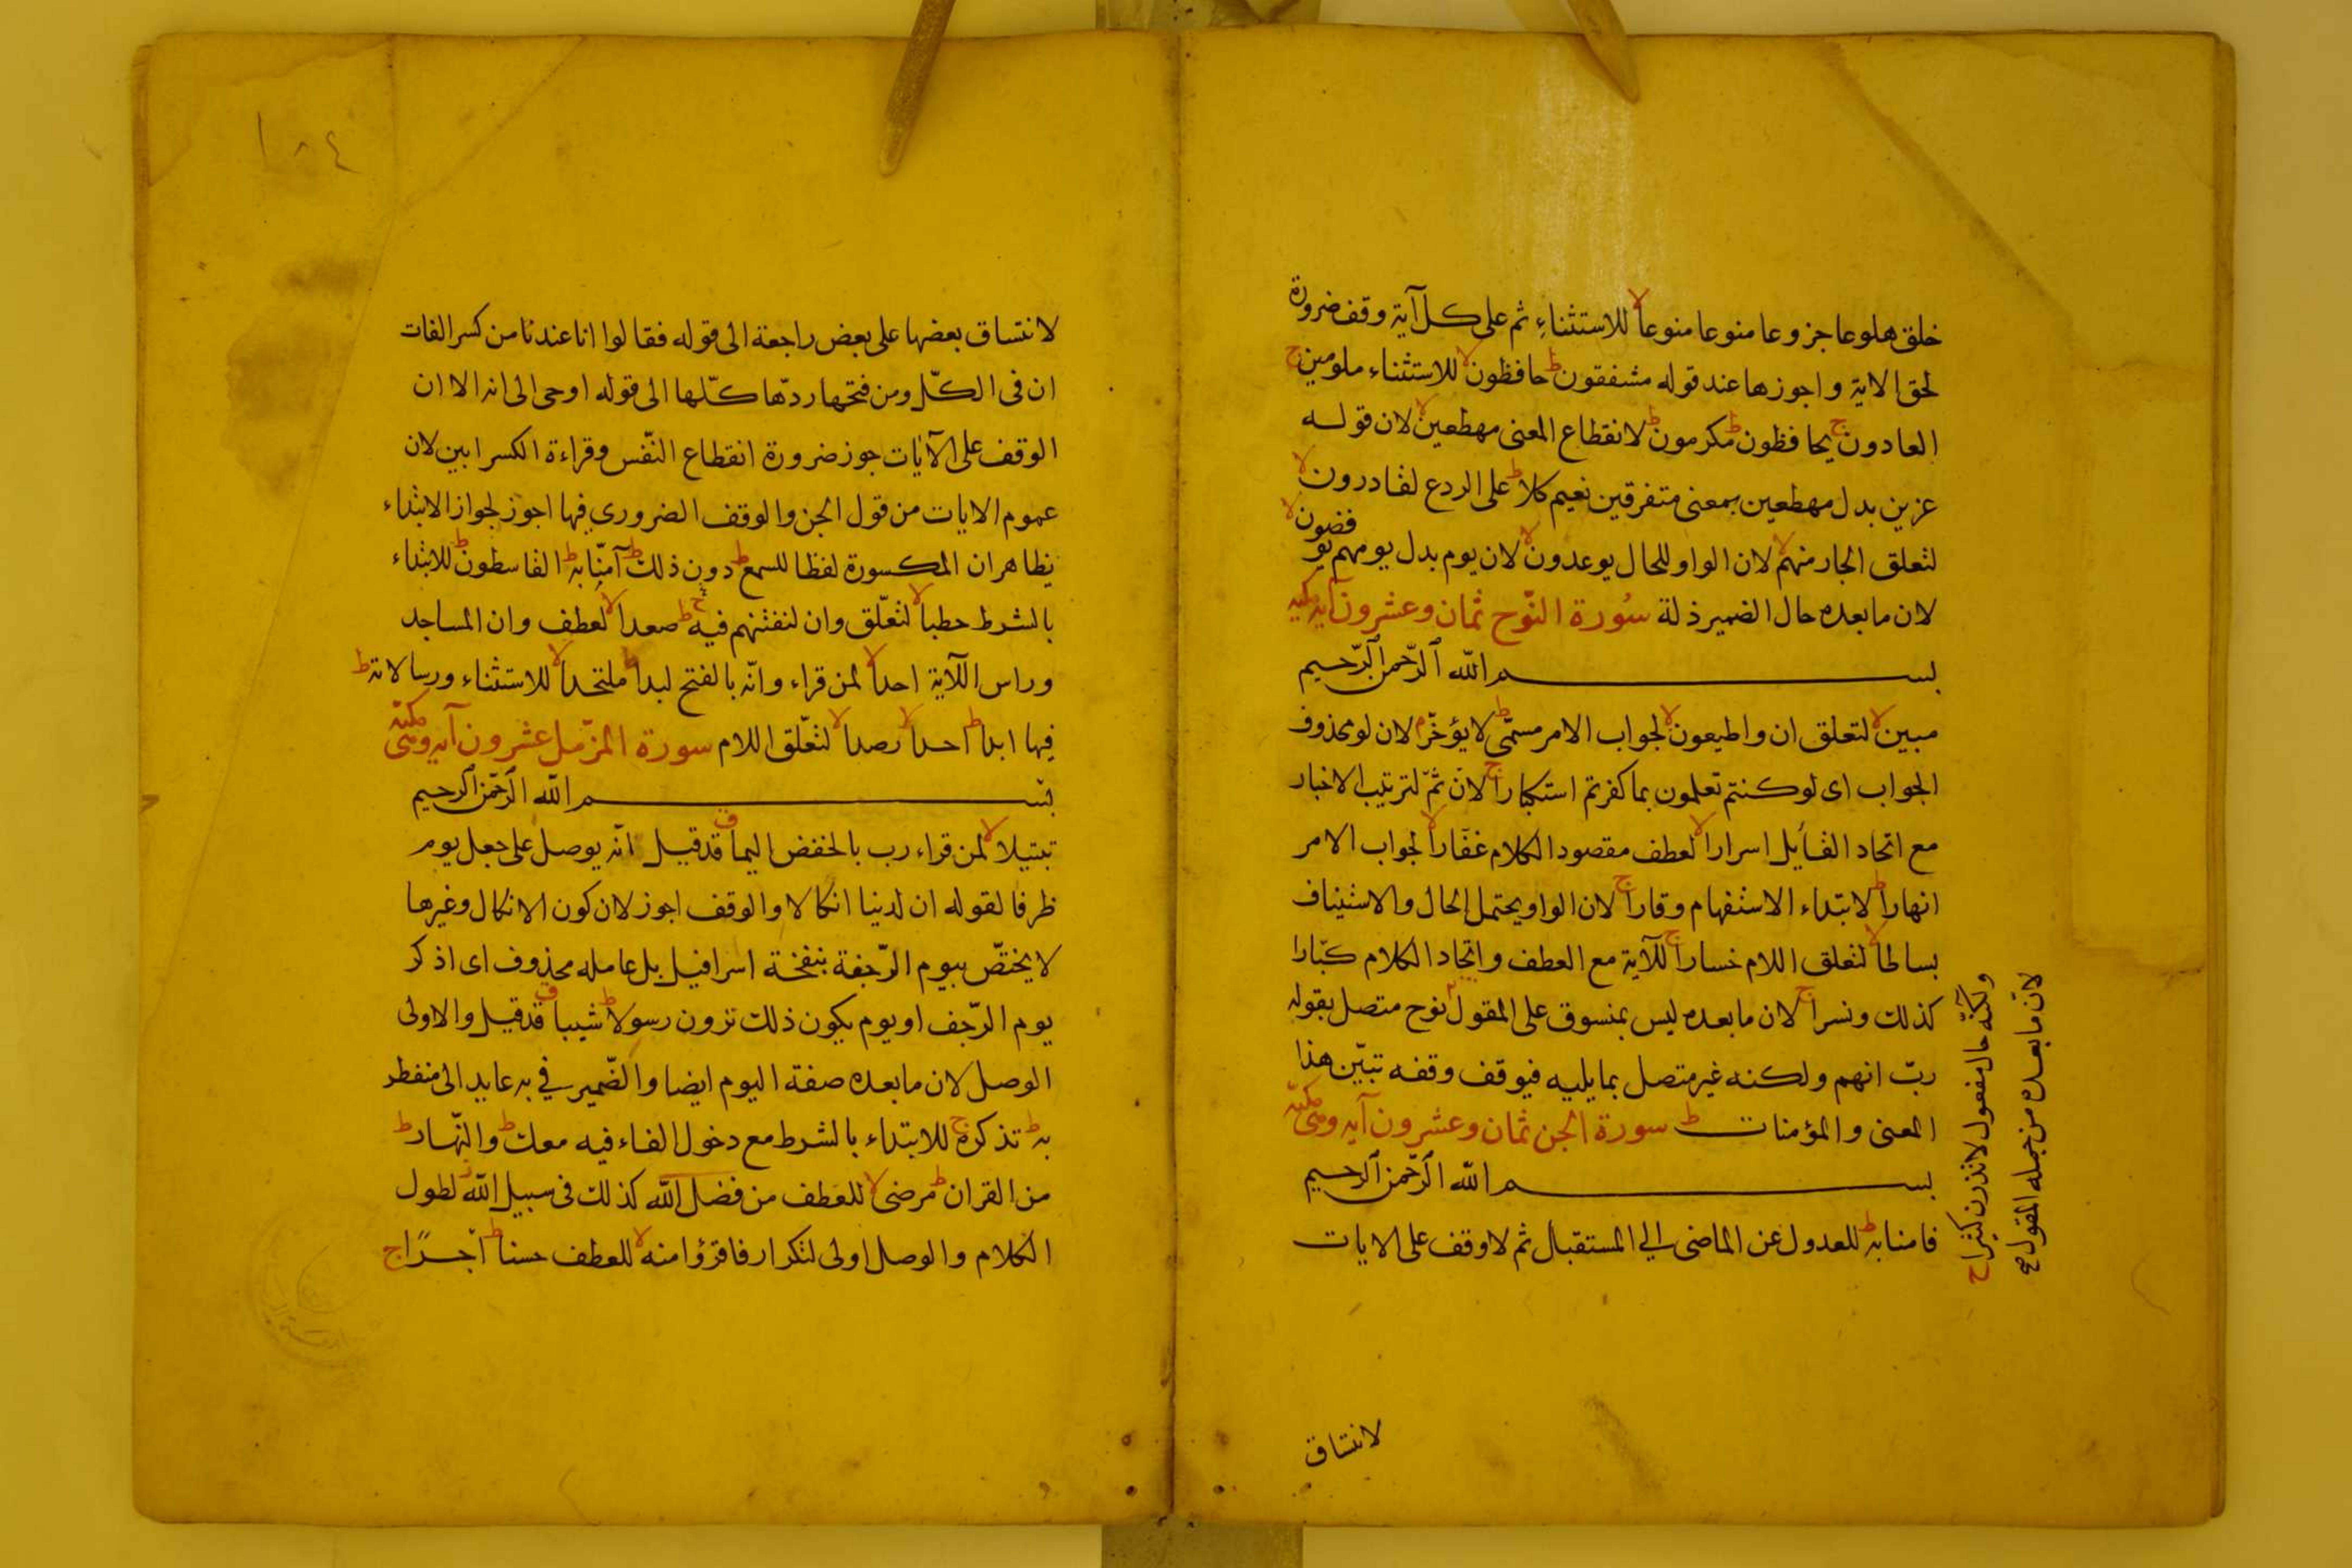 خلق هلوعا جزوعا منوعا منوعا لا للاستثناء ثم على كل آية وقف ضرورة
لحق الاية واجوزها عند قوله مشفقون ط حافظون لا للاستثناء ملومين ج
العادون ج يحافظون ط مكرمون ط لانقطاع المعنى مهطعين لا لان قوله
عزين بدل مهطعين بمعنى متفرقين نعيم كلا ط على الردع لقادرون لا
لتعلق الجار منهم لا لان الواو للحال يوعدون لا لان يوم بدل يومهم يوفضون لا
لان ما بعده حال الضمير ذلة سورة النوح ثمان وعشرون آية مكية
بسم الله الرحمن الرحيم
مبين لا لتعلق ان واطيعون لا لجواب الامر مسمى ط لا يؤخر م لان لو محذوف
الجواب اى لو كنتم تعلمون بما كفرتم استكبارا ج لان ثم لترتيب الاخبار
مع اتحاد القايل اسرارا لا لعطف مقصود الكلام غفارا لا لجواب الامر
انهارا ط لابتداء الاستفهام وقارا ج لان الواو يحتمل الحال والاستيناف
بساطا لا لتعلق اللام خسارا ج للآية مع العطف واتحاد الكلام كبارا
كذلك ونسرا ج لان ما بعده ليس بمنسوق على المقول نوح متصل بقوله
رب انهم ولكنه غير متصل بما يليه فيوقف وقفه تبين هذا
المعنى والمؤمنات ط سورة الجن ثمان وعشرون آية وهى مكية
بسم الله الرحمن الرحيم
فامنا به ط للعدول عن الماضى الى المستقبل ثم لا وقف على الايات
ولكنه حال مفعول لا تذرن كثيرا ج
لان ما بعده من جمله المقول صح
لانتساق
١٨٤
لانتساق بعضها على بعض راجعة الى قوله فقالوا انا عندنا من كسر الفات
ان فى الكل ومن فتحها ردها كلها الى قوله اوحى الى انه الا ان
الوقف على الآيات جوز ضرورة انقطاع النفس وقراءة الكسر ابين لان
عموم الايات من قول الجن والوقف الضروري فيها اجوز لجواز الابتداء
بظاهر ان المكسورة لفظا للسمع ط دون ذلك ط آمنا به ط القاسطون ط للابتداء
بالشرط حطبا لا لتعلق وان لنفتنهم فيه ط صعدا لا لعطف وان المساجد
وراس اللآية احدا لا لمن قراء وانه بالفتح لبدا ط ملتحدا لا للاستثناء ورسالاته ط
فيها ابدا ط احدا لا رصدا لا لتعلق اللام سورة المزمل عشرون آية وهى مكية
بسم الله الرحمن الرحيم
تبتيلا لا لمن قراء رب بالخفض اليما ق قد قيل انه يوصل على جعل يوم
ظرفا لقوله ان لدينا انكالا والوقف اجوز لان كون الانكال وغيرها
لا يختص بيوم الرجفة بنفخة اسرافيل بل عامله محذوف اى اذكر
يوم الرجف او يوم يكون ذلك ترون رسولا ط شيبا ق قد قيل والاولى
الوصل لان ما بعده صفة اليوم ايضا والضمير في به عايد الى منفطر
به ط تذكرة ج للابتداء بالشرط مع دخول الفاء فيه معك ط والنهار ط
من القران ط مرضى لا للعطف من فضل الله كذلك فى سبيل الله لطول
الكلام والوصل اولى لتكرار فاقرؤا منه لا للعطف حسنا ط اجرا ج